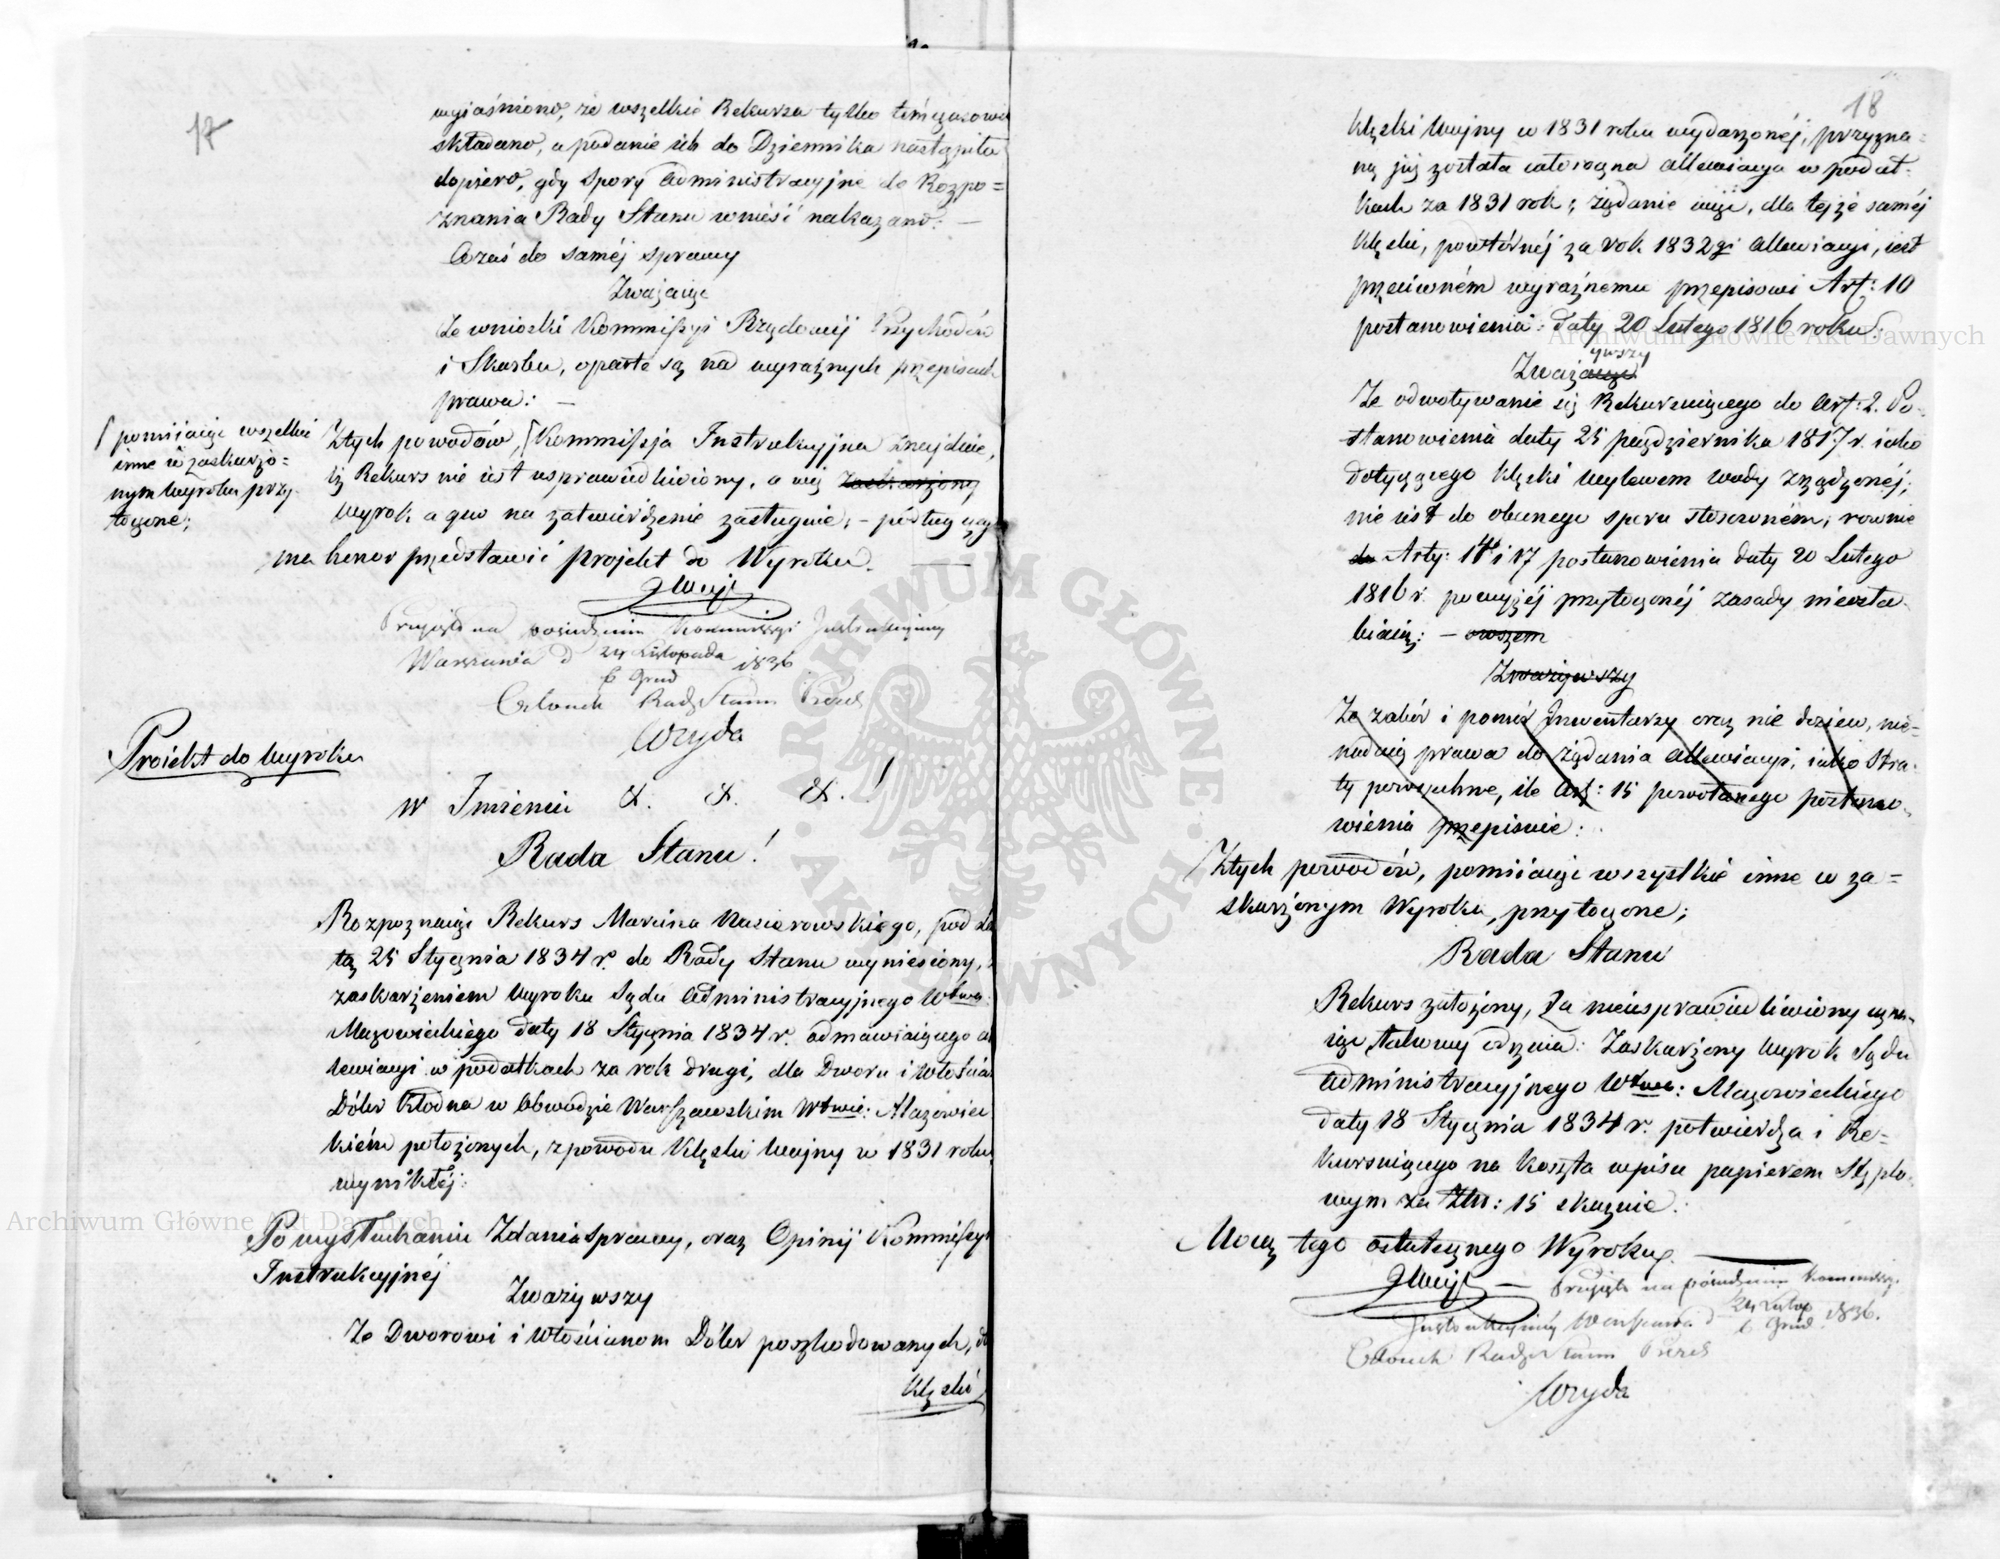 17
wyjaśniono, że wszelkie Rekursa tylko témczasowie
składano, a podanie ich do Dziennika nastąpiło
dopiero, gdy spory Administracyjne do Rozpo=
znania Rady Stanu wnieść nakazano: —
Coraś do saméj sprawy
Zważaiąc
Ze wnioski Kommissyi Rządowéj Przychodów
i Skarbu, oparte są na wyraźnych przepisach
prawa: —
Ztych powodów, [Kommissja Instrukcyjna znajduie,
[pomijaiąc wszelkie
inne w zaskarżo=
nym Wyroku przy-
toczone;
iż Rekurs nie iest usprawiedliwiony, a więc zaskarżony
Wyrok a quo na zatwierdzenie zasługuie; – podług czego
ma honor przedstawić projekt do Wyroku.
Przyięto na posiedzeniu Kommissyi Instrukcyjnéj
Warszawa d 24 Listopada 1836
6 Grud
Członek Rady Stanu Prezes
Woyda
Proiekt do Wyroku
w Imieniu &. &. &. !
Rada Stanu!
Rozpoznaiąc Rekurs Marcina Nasierowskiego, pod da
tą 25 Stycznia 1834 r. do Rady Stanu wyniesiony,
zaskarżeniem Wyroku Sądu Administracyjnego Wdzwa
Mazowieckiego daty 18 Stycznia 1834 r. odmawiaiącego al
lewiacyi w podatkach za rok drugi, dla Dworu i Włościan
Dóbr Kłodna w Obwodzie Warszawskim Wdztwie: Mazowiec
kiém położonych, z powodu Klęski Woyny w 1831 roku
wynikłéj:
Po wysłuchaniu Zdania sprawy, oraz Opinij Kommissyi
Instrukcyjnéj
Zważywszy
Ze Dworowi i Włościanom Dóbr poszkodowanych, do
Klęski
18
Klęski Woyny w 1831 roku wydarzonéj, przyzna=
ną już została całoroczna allewiacya w podat-
kach za 1831 rok; żądanie więc, dla tejże saméj
Klęski, powtórnéj za rok 1832gi allewiacyi, iest
przeciwném wyraźnemu przepisowi Art: 10
postanowienia: daty 20 Lutego 1816 roku:
ywszy
Zważaiąc
Ze odwoływanie się Rekursuiącego do Art: 2. Po-
stanowienia daty 25 października 1817 r. iako
dotyczącego klęski wylewem wody zrządzonéj;
nie iest do obecnego sporu stosowném; rownie
do Arty: 14 i 17 postanowienia daty 20 Lutego
1816 r. powyżéj przytoczonéj zasady nieosła-
biaią: — owszem
Zważywszy
Ze zabór i pomór Inwentarzy oraz nie dosiew, nie-
nadaią prawa do żądania allewiacyi, iako Stra-
ty powszechne, ile Art: 15 powołanego postano-
wienia przepisuie:
Ztych powodów, pomijaiąc wszystkie inne w za=
skarżonym Wyroku, przytoczone;
Rada Stanu
Rekurs założony, Za nieusprawiedliwiony uzna-
iąc, takowy odrzuca: Zaskarżony Wyrok Sądu
Administracyjnego Wdztwa: Mazowieckiego
daty 18 Stycznia 1834 r. potwierdza i Re=
kursuiącego na koszta wpisu papierem Stęplo-
wym za Złt: 15 skazuie.
Mocą tego ostatecznego Wyroku.
Przyięto na posiedzeniu Kommissyi
Instrukcyjnéj Warszawa d 24 Listop 1836.
6 Grud
Członek Rady Stanu Prezes
Woyda
Archiwum Główne Akt Dawnych
Archiwum Główne Akt Dawnych
ARCHIWUM GŁÓWNE · AKT DAWNYCH ·